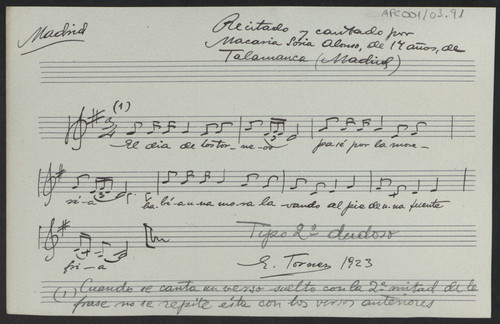 APC001/03.91
Madrid
Recitado y cantado por
Macaria Soria Alonso, de 14 años, de
Talamanca (Madrid)
(1)
El dia de los tor- ne- os pasé por la more-
ri- a ha- bi- a u- na mo- ra la- vando al pie de u- na fuente
fri- a
Tipo 2º dudoso
E. Torner 1923
(1) Cuando se canta un verso suelto con la 2ª mitad de la
frase no se repite ésta con los versos anteriores